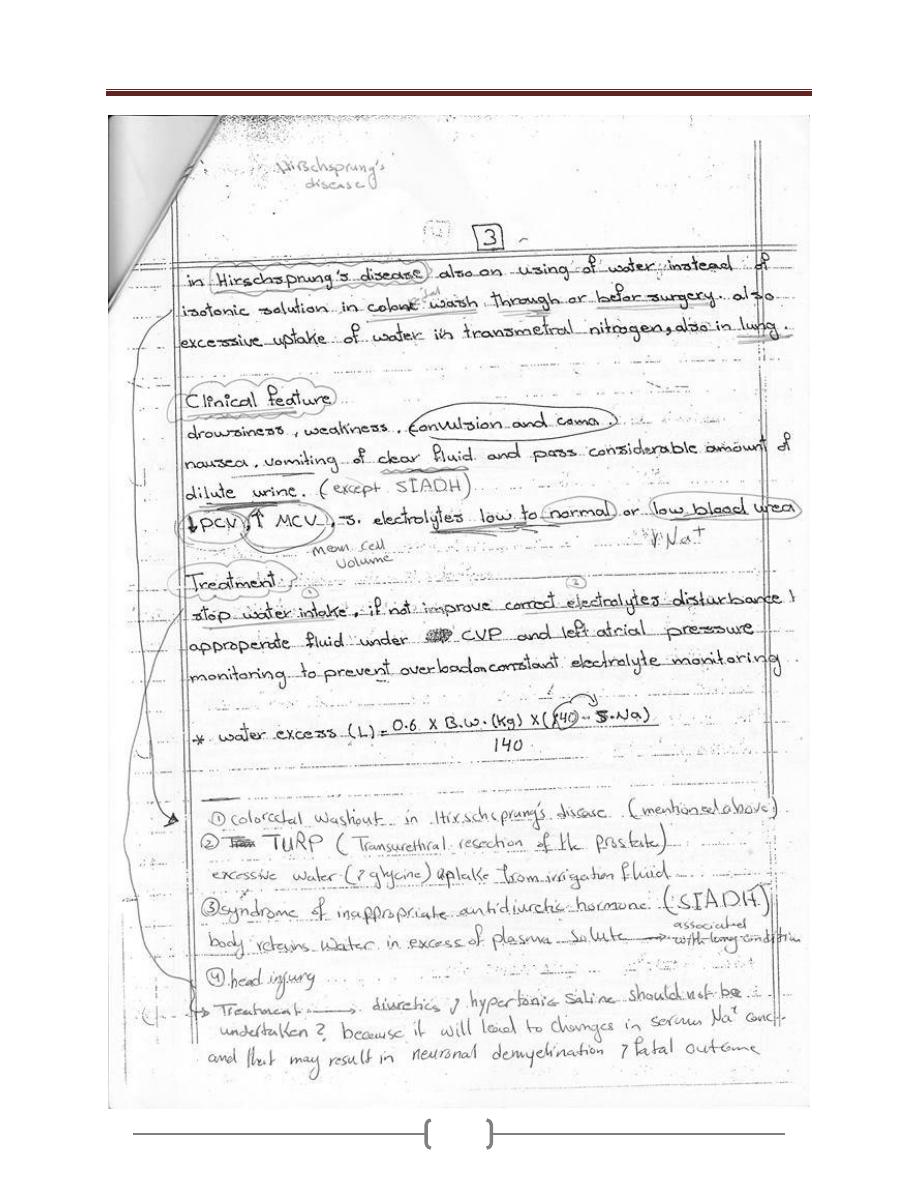 Hirschsprung's
disease
3
in Hirschsprung's disease also on using of water instead of
isotonic solution in colonic wash through or befor surgery. also
excessive uptake of water in transmetral nitrogen, also in lung.
Clinical feature
drowsiness, weakness, convulsion and coma.
nausea, vomiting of clear fluid and pass considerable amount of
dilute urine. (except SIADH)
↓PCV, ↑ MCV, s. electrolytes low to normal or low blood urea
mean cell
volume
↓Na⁺
Treatment
① ②
stop water intake, if not improve correct electrolytes disturbance
approperate fluid under CVP and left atrial pressure
monitoring to prevent overload constant electrolyte monitoring
* water excess (L) = 0.6 X B.W. (Kg) X (140 - S.Na)
140
① colorectal washout in Hirschsprung's disease (mentioned above)
② TURP (Transurethral resection of the prostate)
excessive water (? glycine) uptake from irrigation fluid
③ syndrome of inappropriate antidiuretic hormone (SIADH)
body retains water in excess of plasma solute → associated
with lung condition
④ head injury
Treatment → diuretics, hypertonic saline should not be
undertaken ? because it will lead to changes in serum Na⁺ conc.
and that may result in neuronal demyelination, fatal outcome